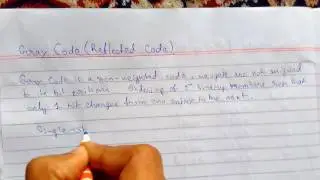 Gray Code (Reflected Code)
Gray Code is a non-weighted code, weights are not assigned
to be bit positions. Ordering of 2ⁿ binary numbers such that
only 1 bit changes form one entire to the next.
Single